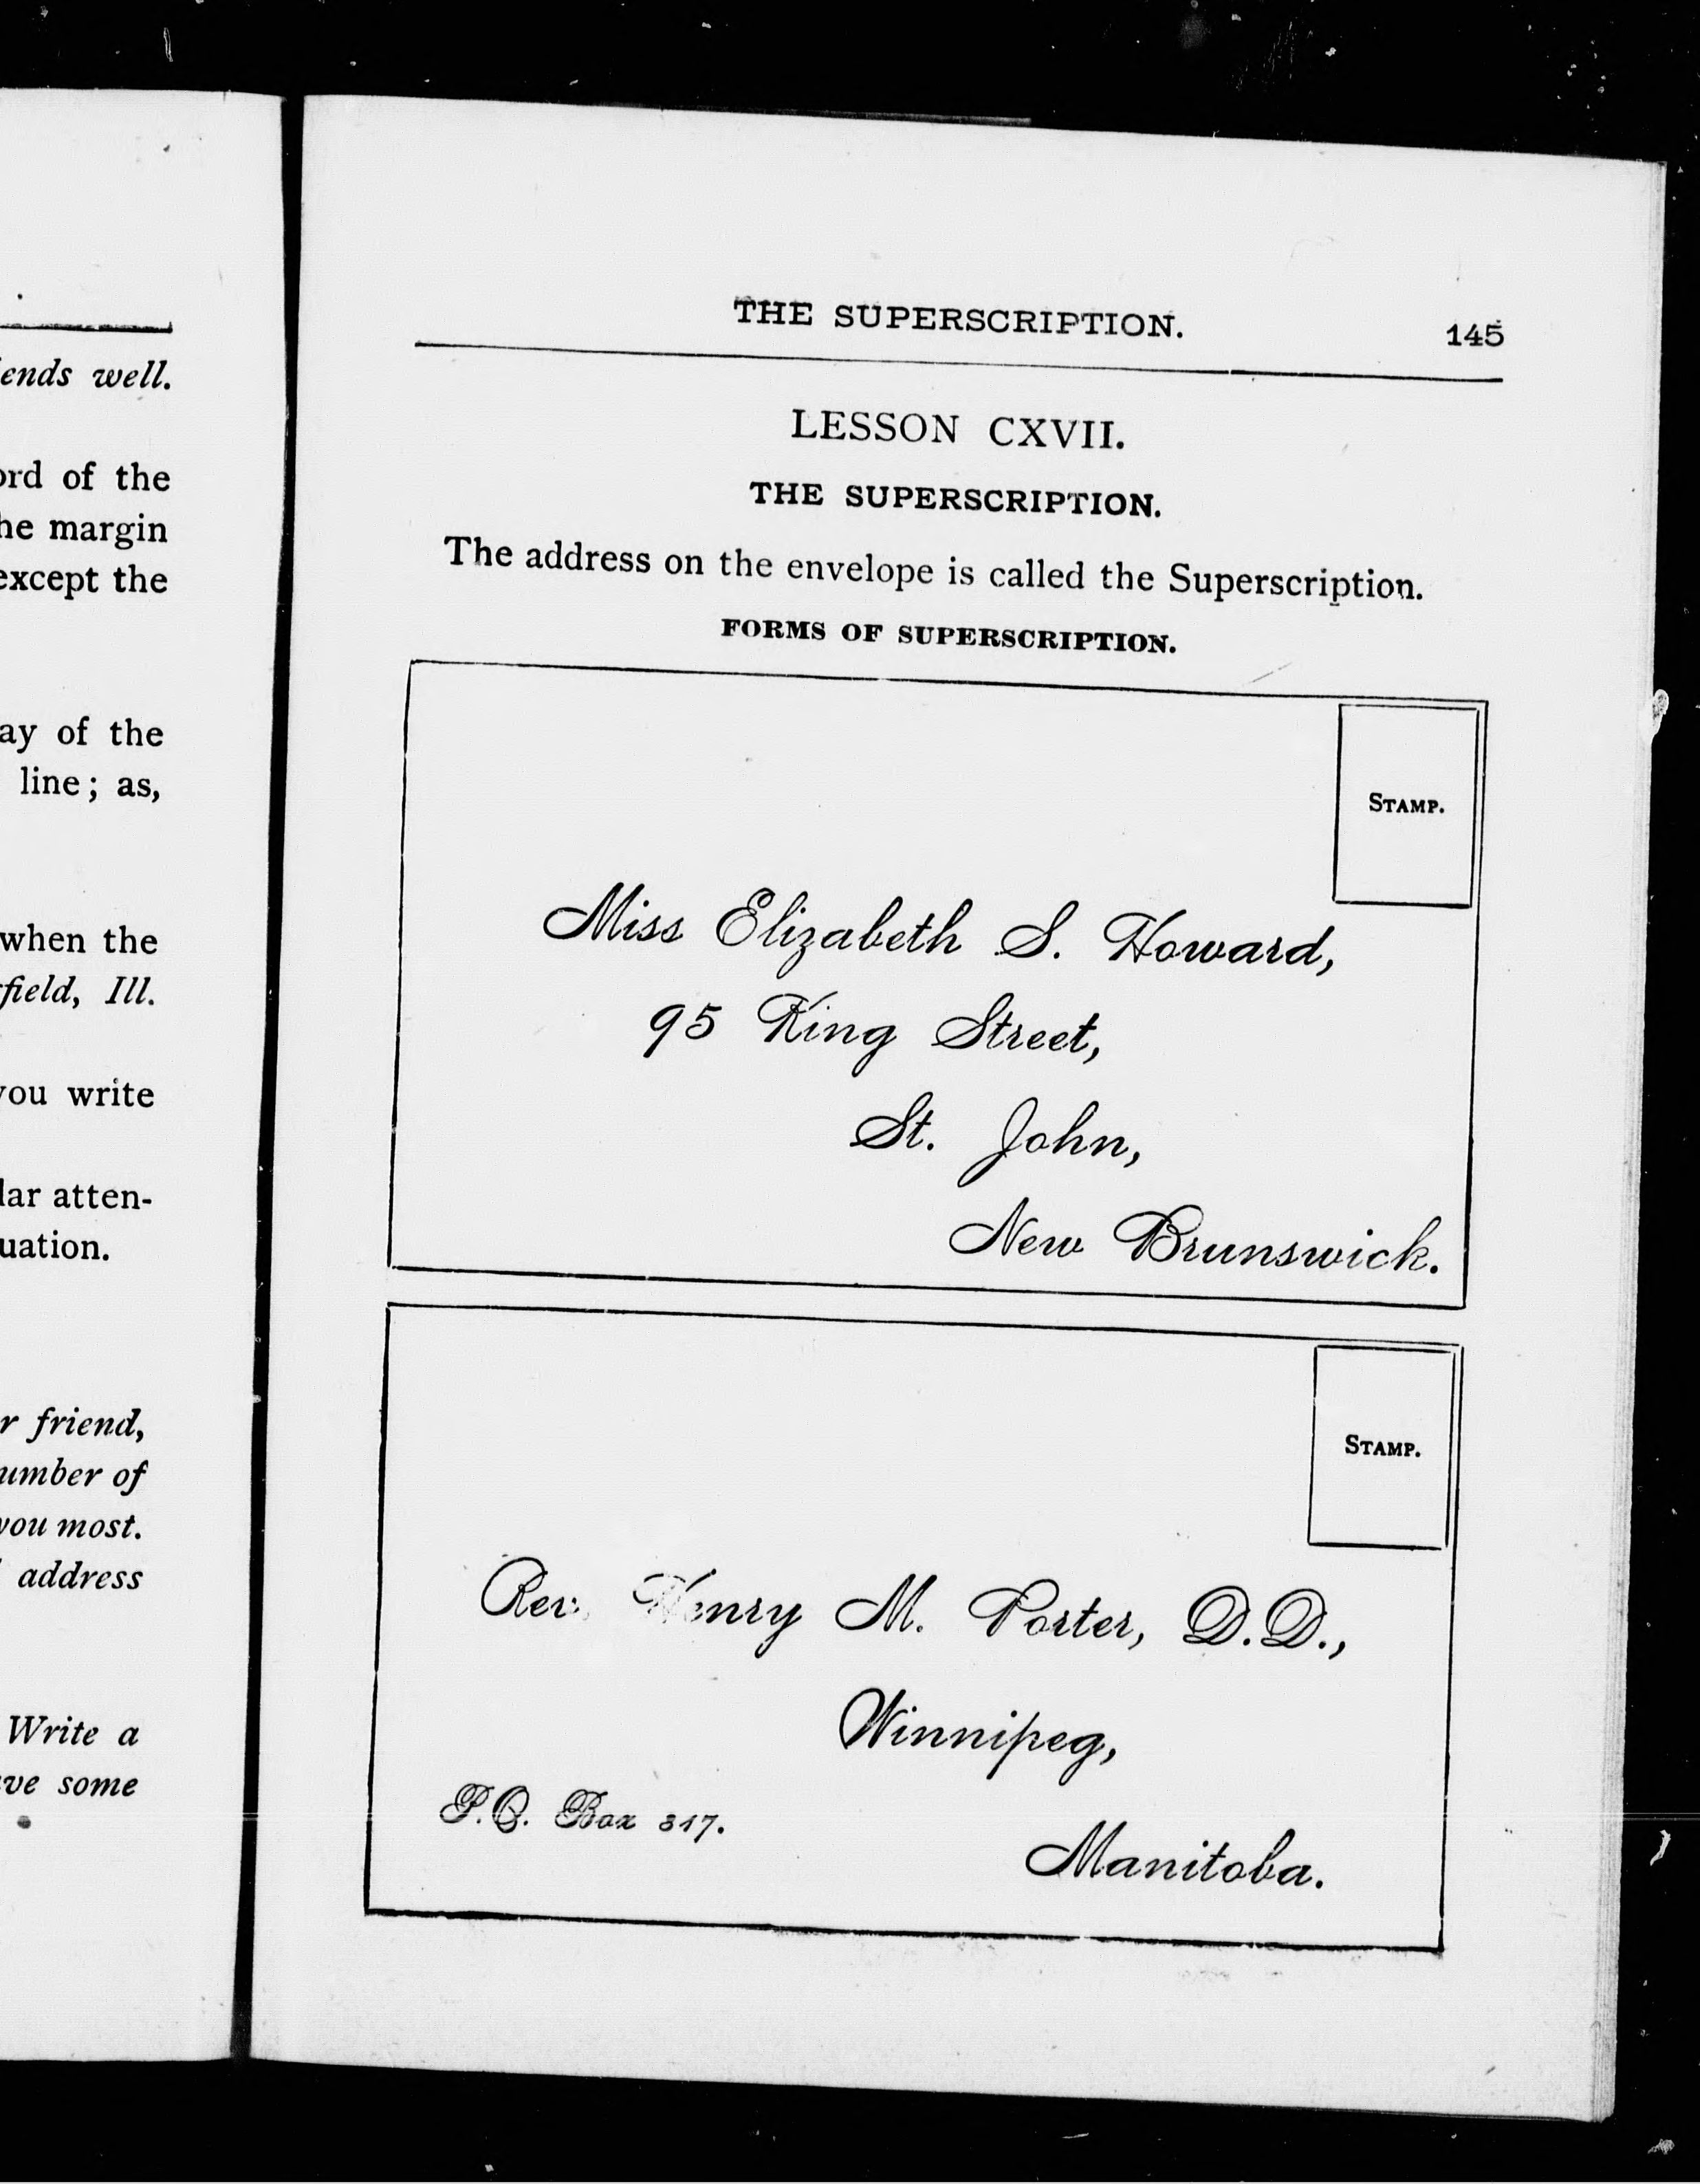 ends well.
ord of the
he margin
except the
ay of the
line; as,
when the
field, Ill.
you write
lar atten-
uation.
r friend,
umber of
you most.
address
Write a
ve some
THE SUPERSCRIPTION. 145
LESSON CXVII.
THE SUPERSCRIPTION.
The address on the envelope is called the Superscription.
FORMS OF SUPERSCRIPTION.
STAMP.
Miss Elizabeth S. Howard,
95 King Street,
St. John,
New Brunswick.
STAMP.
Rev. Henry M. Porter, D.D.,
Winnipeg,
P.O. Box 317.
Manitoba.